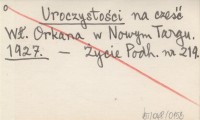 Uroczystości na cześć
Wł. Orkana w Nowym Targu.
1927. — Życie Podh. nr 219.